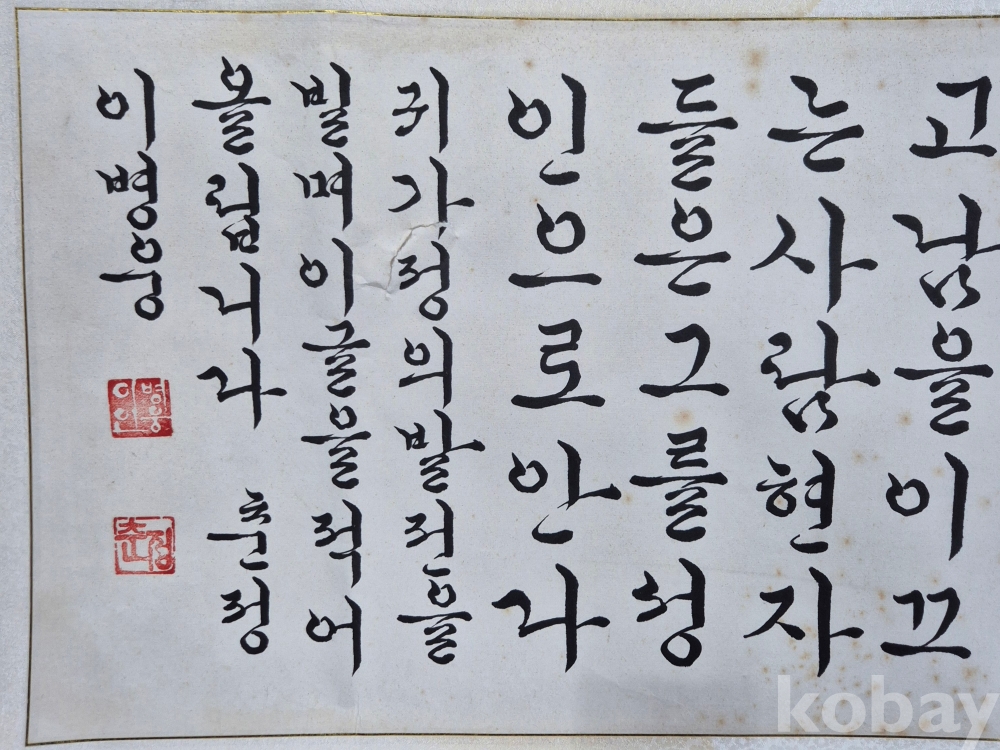 고남을이끄
는사람현자
들은그를성
인으로안다
귀가정의발전을
빌며이글을적어
올립니다 춘정
이병웅
춘정
kobay